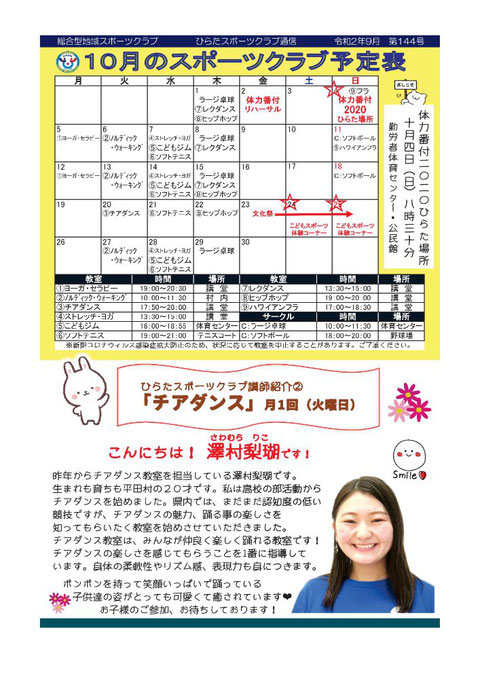 総合型地域スポーツクラブ　ひらたスポーツクラブ通信　令和2年9月　第144号
10月のスポーツクラブ予定表
月 火 水 木 金 土 日
1 ラージ卓球 ⑦レクダンス ⑧ヒップホップ
2 体力番付 リハーサル
3
4 ⑨フラ 体力番付 2020 ひらた場所
5 ①ヨーガ・セラピー
6 ②ノルディック・ウォーキング
7 ④ストレッチ・ヨガ ⑤こどもジム ⑥ソフトテニス
8 ラージ卓球 ⑦レクダンス ⑧ヒップホップ
9
10
11 C:ソフトボール ⑨ハワイアンフラ
12 ①ヨーガ・セラピー
13 ②ノルディック・ウォーキング
14 ④ストレッチ・ヨガ ⑤こどもジム ⑥ソフトテニス
15 ラージ卓球 ⑦レクダンス ⑧ヒップホップ
16
17
18 C:ソフトボール
19
20 ③チアダンス
21 ⑥ソフトテニス
22 ⑧ヒップホップ
23 文化祭
24 こどもスポーツ体験コーナー
25 こどもスポーツ体験コーナー
26
27 ②ノルディック・ウォーキング
28 ④ストレッチ・ヨガ ⑤こどもジム ⑥ソフトテニス
29 ラージ卓球 ⑦レクダンス
30
おしらせ
体力番付二〇二〇ひらた場所
十月四日（日）八時三十分
勤労者体育センター・公民館
教室 時間 場所 教室 時間 場所
①ヨーガ・セラピー 19:00～20:30 講堂 ⑦レクダンス 13:30～15:00 講堂
②ノルディック・ウォーキング 10:00～11:30 村内 ⑧ヒップホップ 19:00～20:00 講堂
③チアダンス 17:50～20:00 講堂 ⑨ハワイアンフラ 17:00～18:30 講堂
④ストレッチ・ヨガ 13:30～15:00 講堂 サークル 時間 場所
⑤こどもジム 16:00～18:55 体育センター C:ラージ卓球 10:00～11:30 体育センター
⑥ソフトテニス 19:00～21:00 テニスコート C:ソフトボール 18:00～20:00 野球場
※新型コロナウイルス感染症拡大防止のため、状況に応じて教室を中止することがあります。ご了承ください。
ひらたスポーツクラブ講師紹介②
『チアダンス』月1回（火曜日）
さわむら りこ
こんにちは！ 澤村梨瑚です！
Smile
昨年からチアダンス教室を担当している澤村梨瑚です。
生まれも育ちも平田村の20才です。私は高校の部活動から
チアダンスを始めました。県内では、まだまだ認知度の低い
競技ですが、チアダンスの魅力、踊る事の楽しさを
知ってもらいたく教室を始めさせていただきました。
チアダンス教室は、みんなが仲良く楽しく踊れる教室です！
チアダンスの楽しさを感じてもらうことを1番に指導して
います。身体の柔軟性やリズム感、表現力も身につきます。
ポンポンを持って笑顔いっぱいで踊っている
子供達の姿がとっても可愛くて癒されています❤
お子様のご参加、お待ちしております！